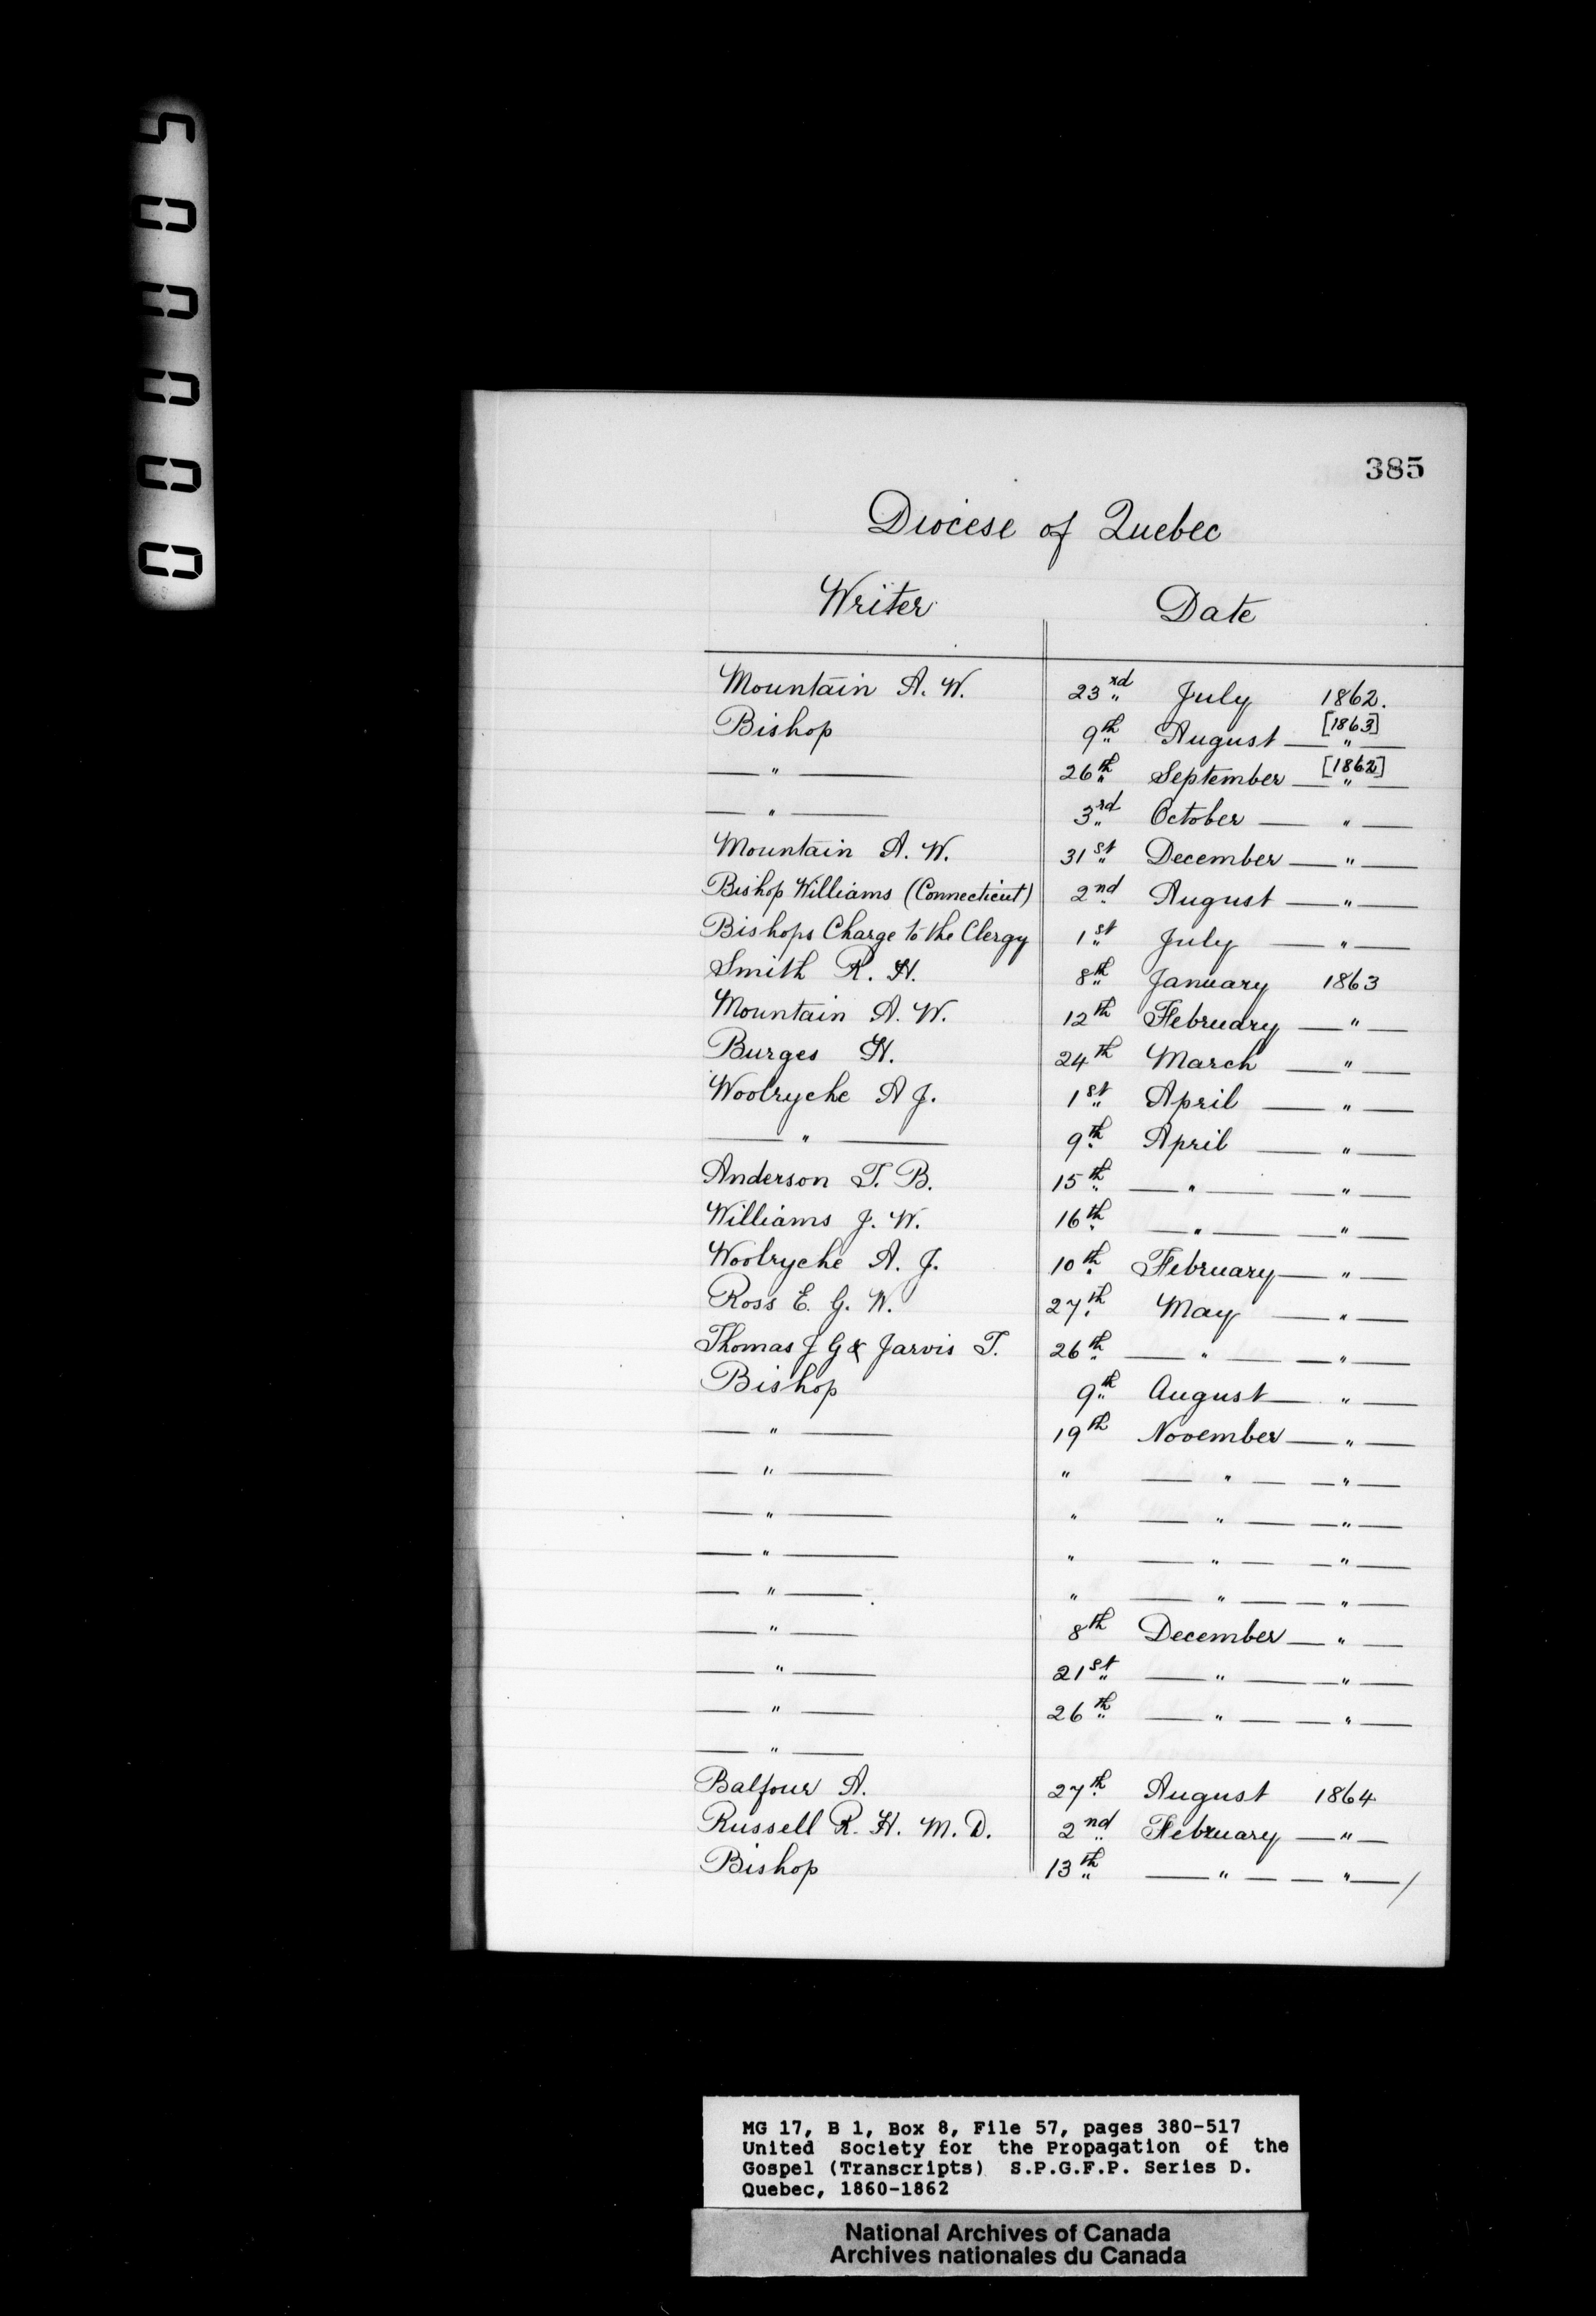 500000
385
Diocese of Quebec
Writer Date
Mountain A. W. 23rd July 1862.
Bishop 9th August — [1863] " —
— " — 26th September — [1862] " —
— " — 3rd October — " —
Mountain A. W. 31st December — " —
Bishop Williams (Connecticut) 2nd August — " —
Bishops Charge to the Clergy 1st July — " —
Smith R. H. 8th January 1863
Mountain A. W. 12th February — " —
Burges H. 24th March — " —
Woolryche A J. 1st April — " —
— " — 9th April — " —
Anderson T. B. 15th — " — — " —
Williams J. W. 16th — " — — " —
Woolryche A. J. 10th February — " —
Ross E. G. W. 27th May — " —
Thomas J G & Jarvis T. 26th — " — — " —
Bishop 9th August — " —
— " — 19th November — " —
— " — " — " — — " —
— " — " — " — — " —
— " — " — " — — " —
— " — " — " — — " —
— " — 8th December — " —
— " — 21st — " — — " —
— " — 26th — " — — " —
— " —
Balfour A. 27th August 1864
Russell R. H. M. D. 2nd February — " —
Bishop 13th — " — — " — /
MG 17, B 1, Box 8, File 57, pages 380-517
United Society for the Propagation of the
Gospel (Transcripts) S.P.G.F.P. Series D.
Quebec, 1860-1862
National Archives of Canada
Archives nationales du Canada